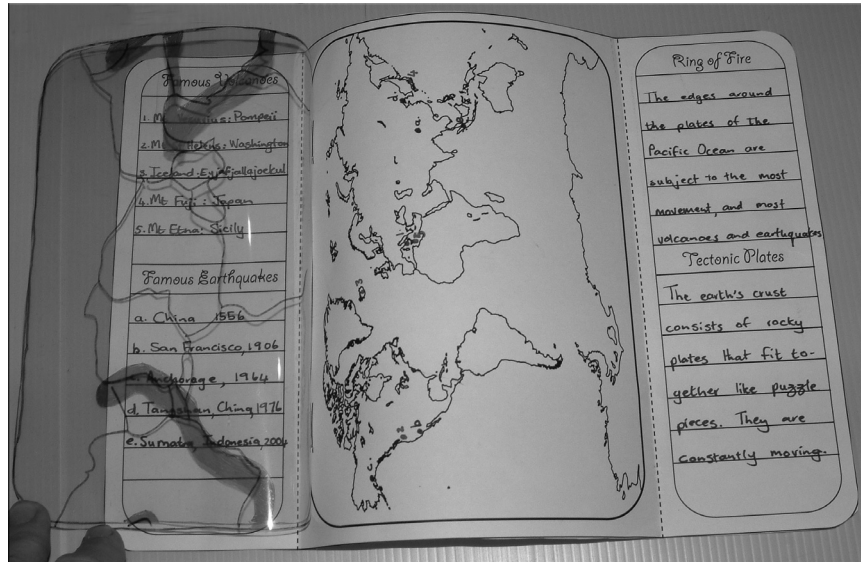 Famous Volcanoes
1. Mt Vesuvius: Pompeii
2. Mt St Helens: Washington
3. Iceland: Eyjafjallajoekul
4. Mt Fuji: Japan
5. Mt Etna: Sicily
Famous Earthquakes
a. China 1556
b. San Francisco, 1906
c. Anchorage, 1964
d. Tangshan, China, 1976
e. Sumatra Indonesia, 2004
Ring of Fire
The edges around
the plates of the
Pacific Ocean are
subject to the most
movement, and most
volcanoes and earthquakes
Tectonic Plates
The earth's crust
consists of rocky
plates that fit to-
gether like puzzle
pieces. They are
constantly moving.